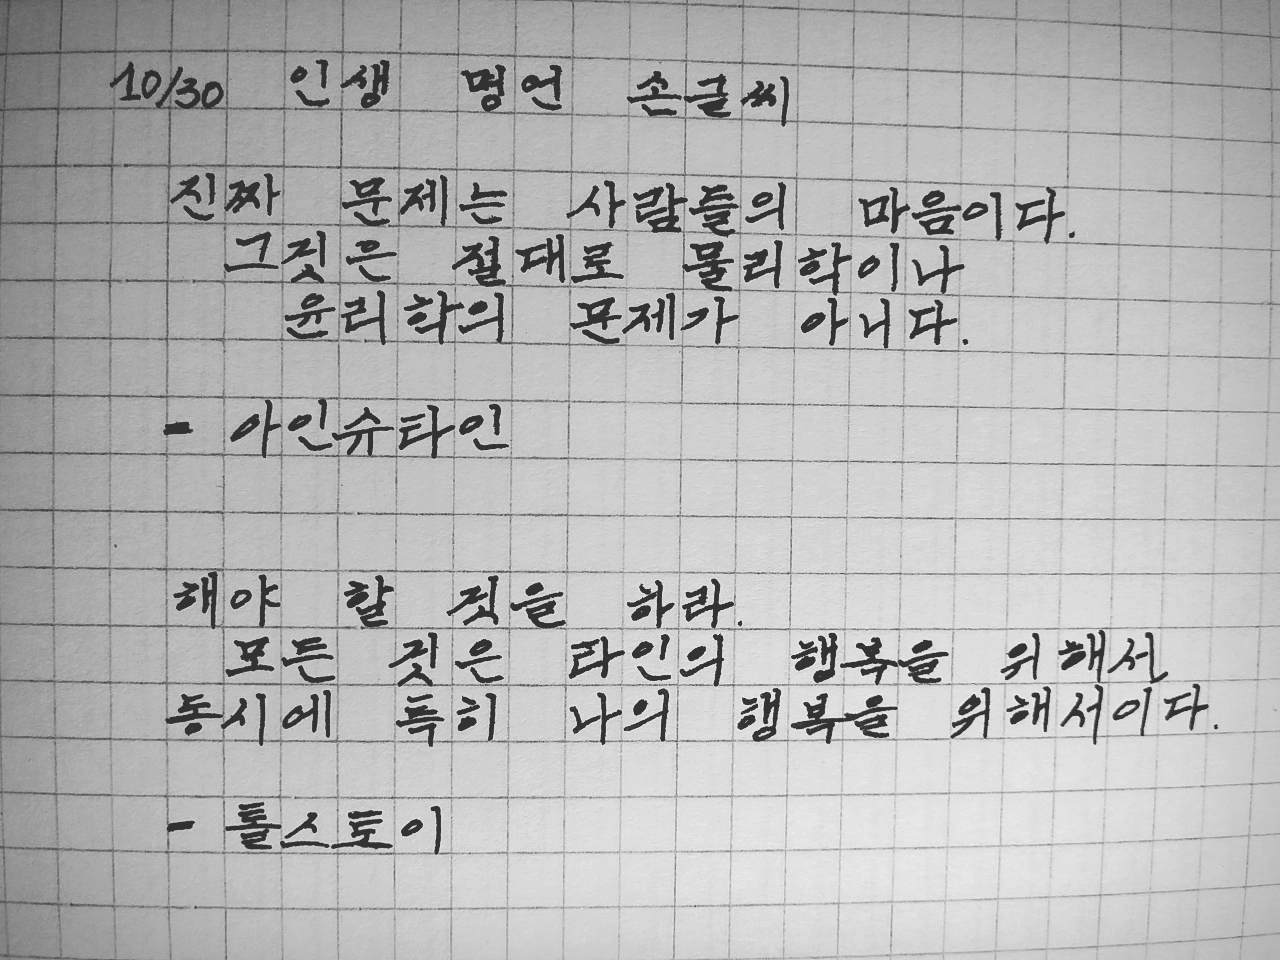 10/30 인생 명언 손글씨
진짜 문제는 사람들의 마음이다.
그것은 절대로 물리학이나
윤리학의 문제가 아니다.
- 아인슈타인
해야 할 것을 하라.
모든 것은 타인의 행복을 위해서
동시에 특히 나의 행복을 위해서이다.
- 톨스토이